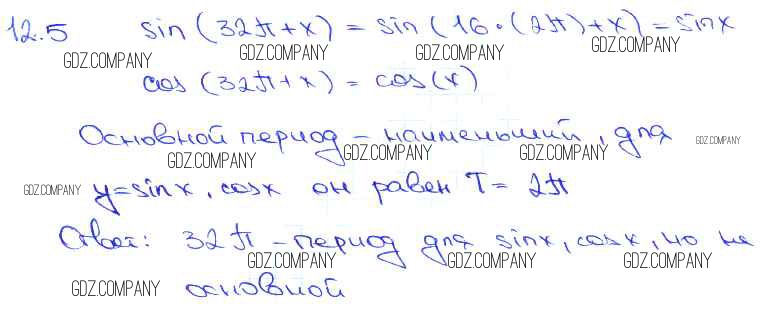 12.5 sin(32π+x) = sin(16·(2π)+x) = sinx
GDZ.COMPANY GDZ.COMPANY GDZ.COMPANY GDZ.COMPANY
cos(32π+x) = cos(x)
Основной период – наименьший, для
GDZ.COMPANY GDZ.COMPANY GDZ.COMPANY GDZ.COMPANY
GDZ.COMPANY y=sinx, cosx он равен T= 2π
Ответ: 32π – период для sinx, cosx, но не
GDZ.COMPANY GDZ.COMPANY GDZ.COMPANY
GDZ.COMPANY основной